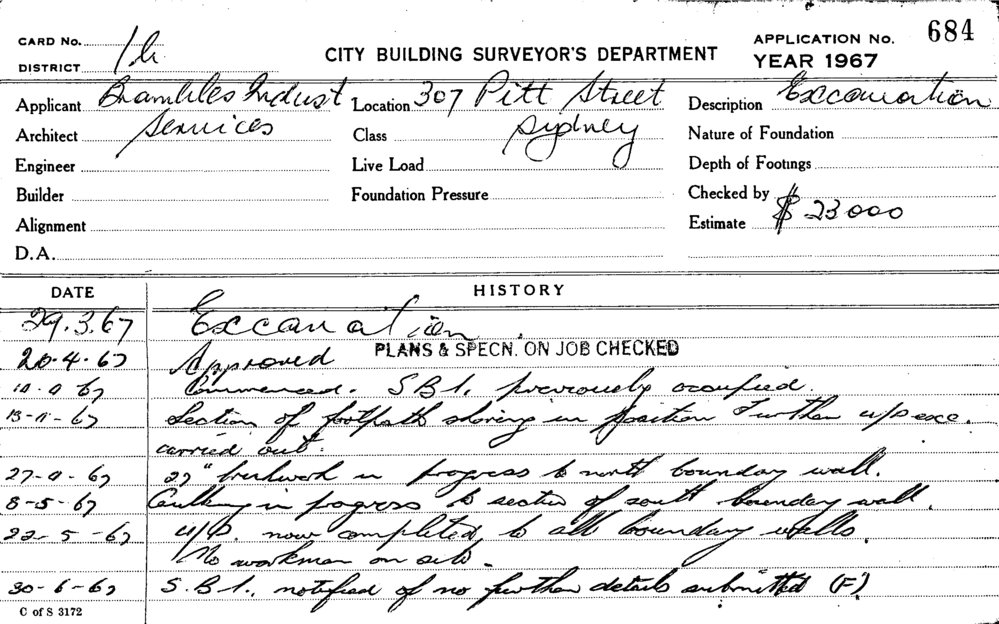 CARD No. 1b
DISTRICT
CITY BUILDING SURVEYOR'S DEPARTMENT
APPLICATION No. 684
YEAR 1967
Applicant Brambles Indust Location 307 Pitt Street Description Excavation
Architect Services Class Sydney Nature of Foundation
Engineer Live Load Depth of Footings
Builder Foundation Pressure Checked by
Alignment Estimate $ 23000
D.A.
DATE HISTORY
29.3.67 Excavation
20.4.67 Approved PLANS & SPECN. ON JOB CHECKED
Commenced. SB1. previously occupied.
Section of footpath shoring in position Further u/p exc.
carried out.
27" brickwork in progress to north boundary wall.
8-5-67 Caulking in progress to section of south boundary wall.
22-5-67 U/P. now completed to all boundary walls.
No workmen on site.
30-6-67 S.B1., notified of no further details submitted (F)
C of S 3172